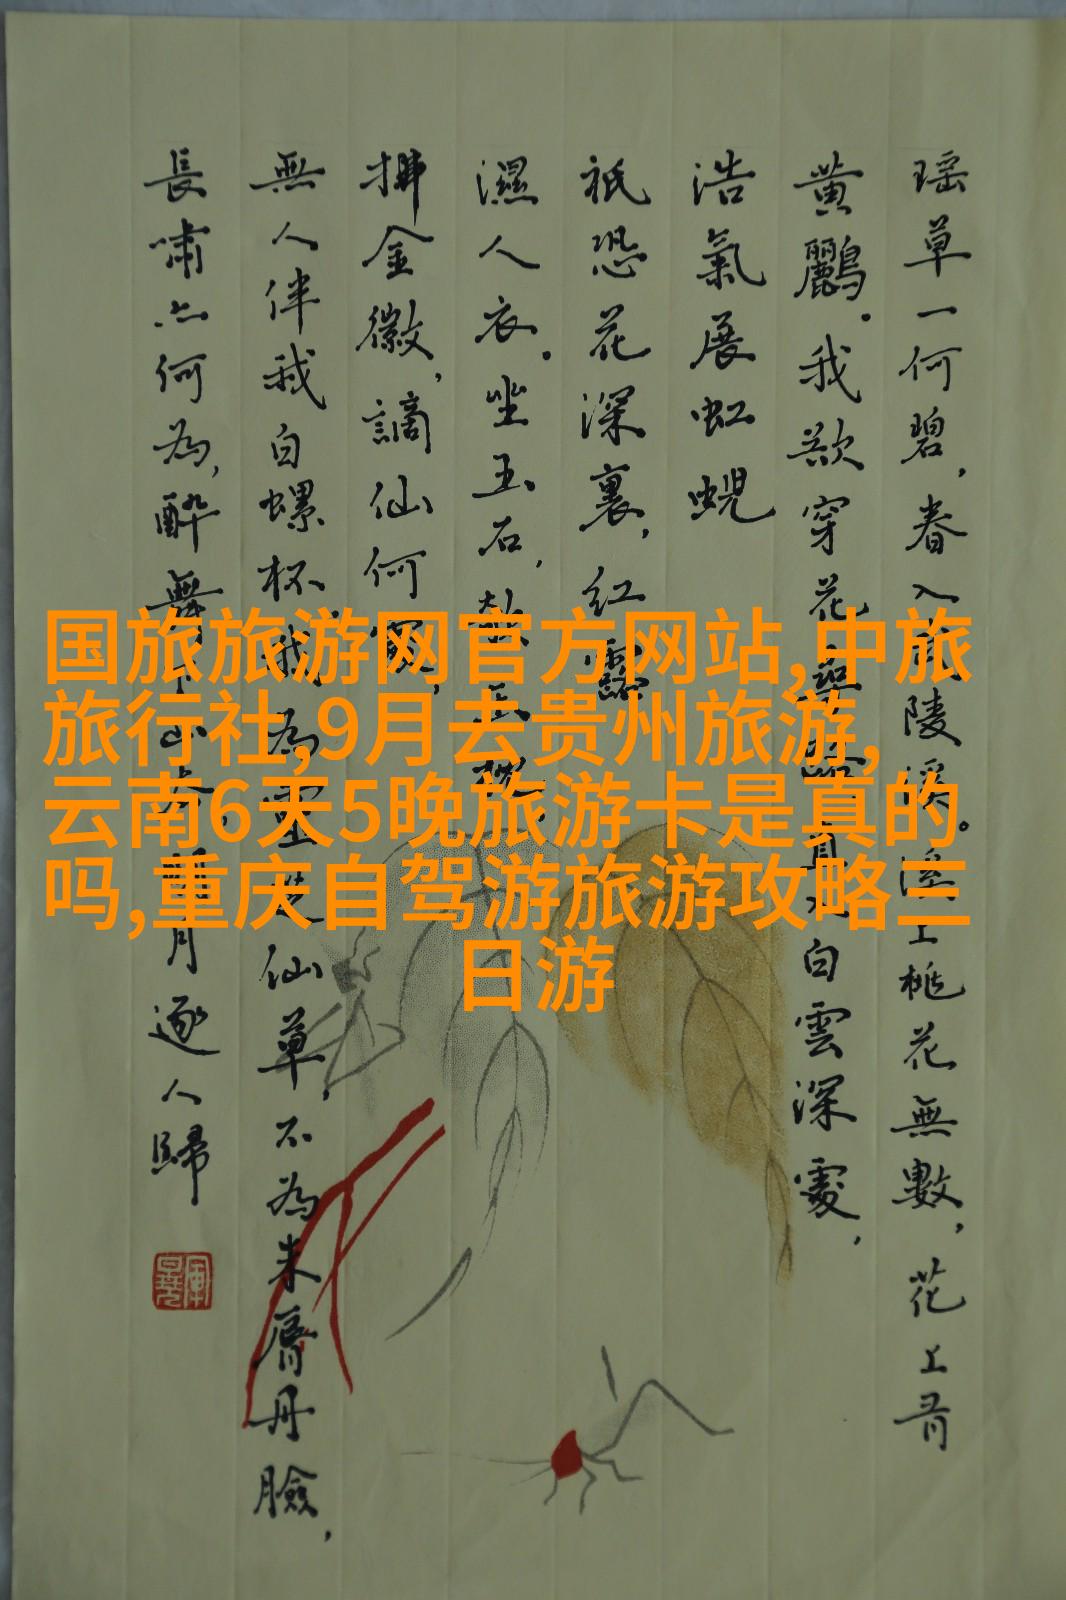 瑶草一何碧，春入武陵溪。溪上桃花無數，花上有
黄鸝。我欲穿花尋路，直入白雲深處，
浩氣展虹蜺
祇恐花深裏，紅露
濕人衣。坐玉石，欹玉枕，
拂金徽，謫仙何處，
無人伴我白螺杯。我為靈芝仙草，不為朱唇丹臉，
長嘯亦何為，醉舞下山去，明月逐人歸
国旅旅游网官方网站,中旅
旅行社,9月去贵州旅游,
云南6天5晚旅游卡是真的
吗,重庆自驾游旅游攻略三
日游